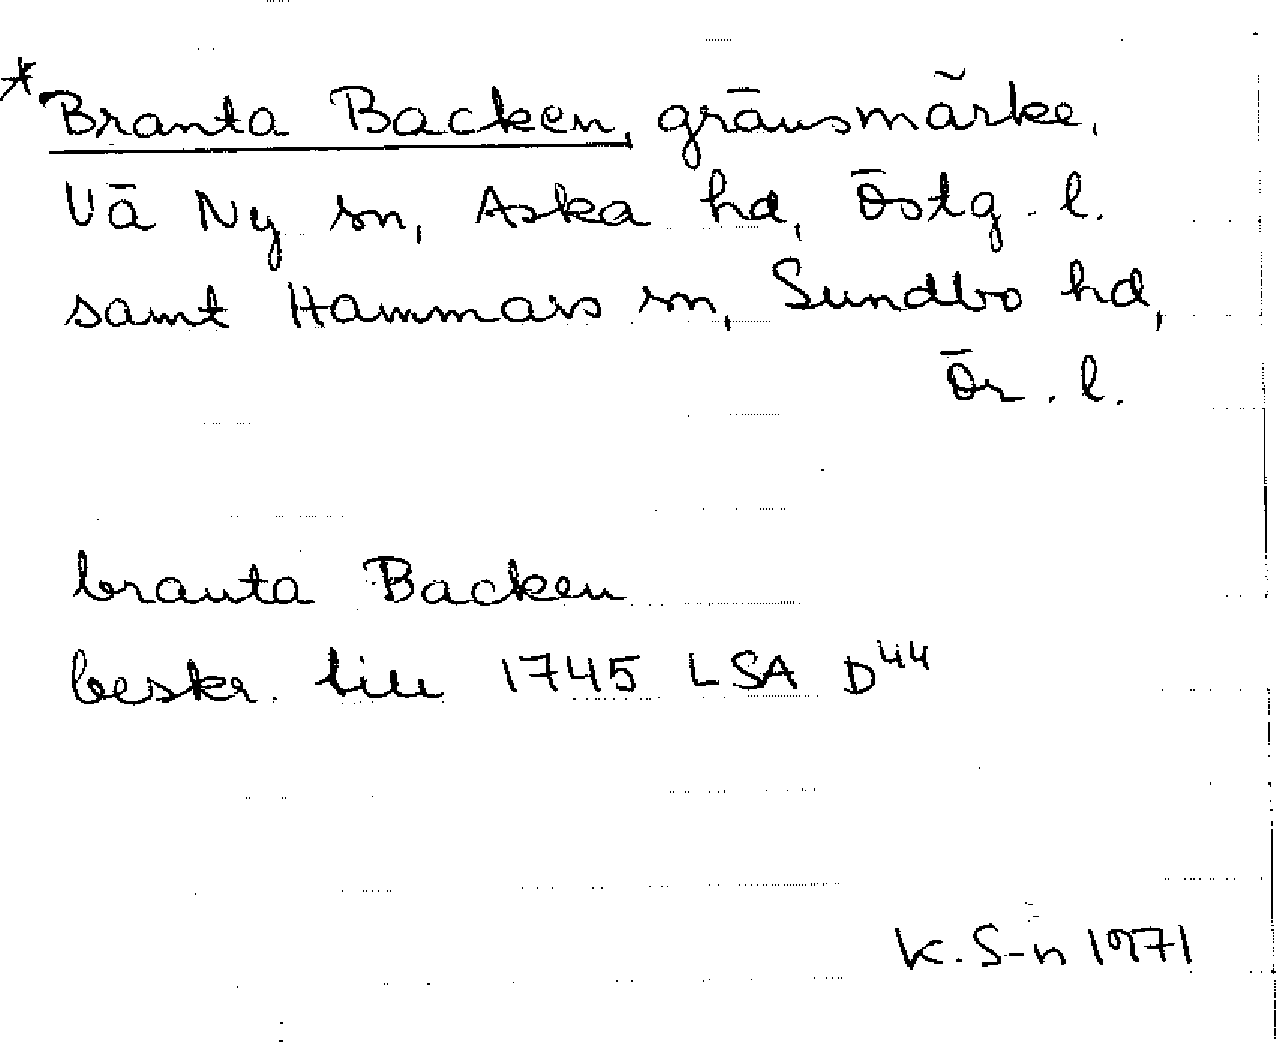 *Branta Backen, gränsmärke,
Vä Ny sn, Aska hd, Östg. l.
samt Hammars sn, Sundbo hd,
Ör. l.
branta Backen
beskr. till 1745 LSA D44
K. S-n 1971